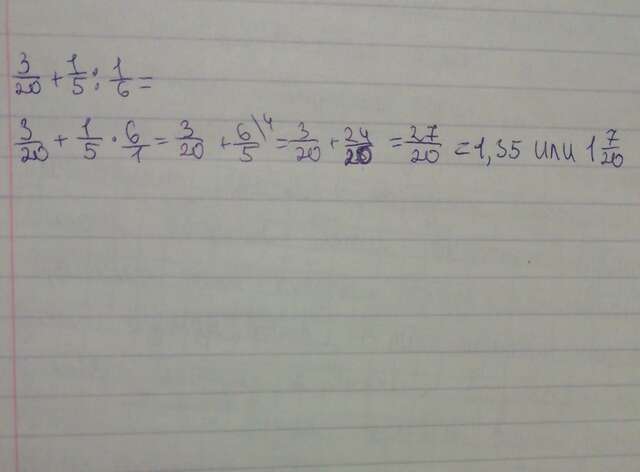 3/20 + 1/5 : 1/6 =
3/20 + 1/5 · 6/1 = 3/20 + 6/5 \4 = 3/20 + 24/20 = 27/20 = 1,35 или 1 7/20